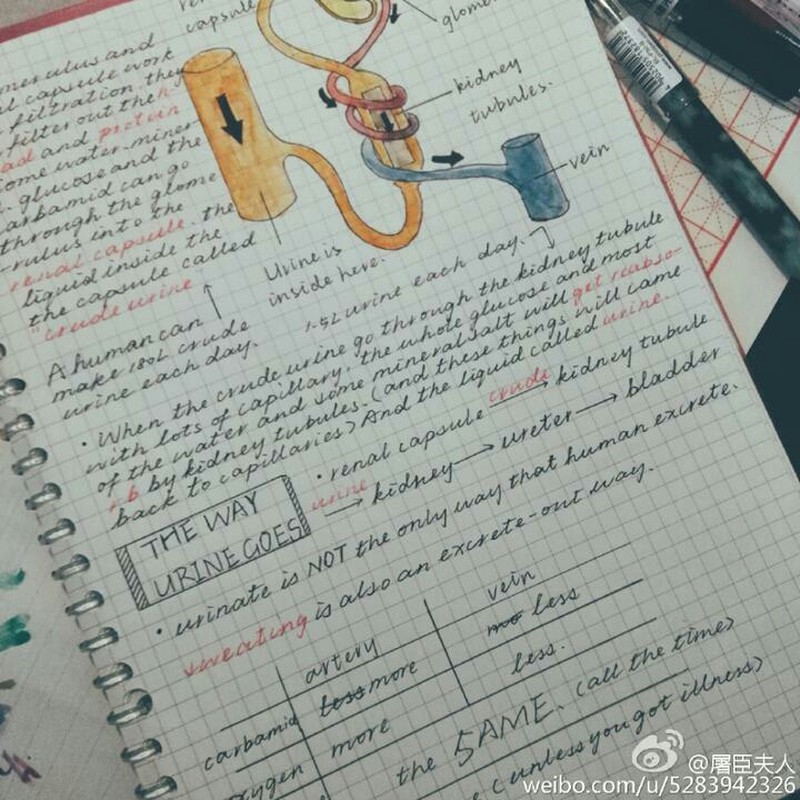 capsule
glome
kidney
tubules.
vein
merulus and
capsule work
filtration, they
filter out the
and protein
some water, miner
glucose and the
carbamid can go
through the glome
-rulus into the
renal capsule. the
liquid inside the
the capsule called
"crude urine
Urine is
inside here.
A human can
make 180L crude
urine each day.
1.5L urine each day.
· When the crude urine go through the kidney tubule
with lots of capillary. the whole glucose and most
of the water and some mineral salt will get reabso-
rb by kidney tubules. (and these things will came
back to capillaries) And the liquid called urine.
THE WAY
URINE GOES
· renal capsule crude → kidney tubule
urine → kidney → ureter → bladder
· urinate is NOT the only way that human excrete.
sweating is also an excrete-out way.
artery vein
carbamid less more less
oxygen more less.
the SAME. (all the time)
(unless you got illness)
@屠臣夫人
weibo.com/u/5283942326